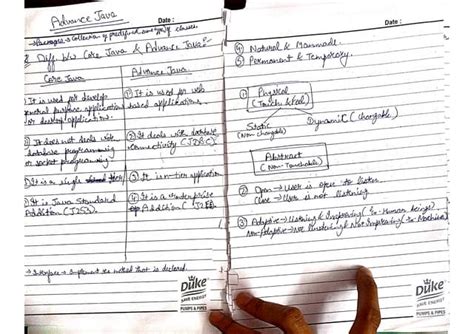 Advance Java
Date :
→ Package → Collection of predefined
Diff b/w Core Java & Advance Java:-
Core Java
Advance Java
It is used for develop
general purpose application
or desktop application.
① It is used for web
based application.
② It does not deals with
database programming
or socket programming
② It deals with database
connectivity (JDBC)
It is a single
③ It is n-tier application
It is Java Standard
Addition (J2SE)
④ It is a enterprise
Addition
→ Implement the method that is declared.
Duke
SAVE ENERGY
PUMPS & PIPES
Date :
④ Natural & Manmade.
⑤ Permanent & Temporary.
① Physical
(Touch & Feel)
Static
(Non-changable)
Dynamic (Changable)
Abstract
(Non-Touchable)
② Open → User is open to listen
Close → User is not listening
③ Adaptive → Listening & Improving (In-Human beings)
Non-Adaptive → Not listening & Not Improving (In Machine)
Duke
SAVE ENERGY
PUMPS & PIPES